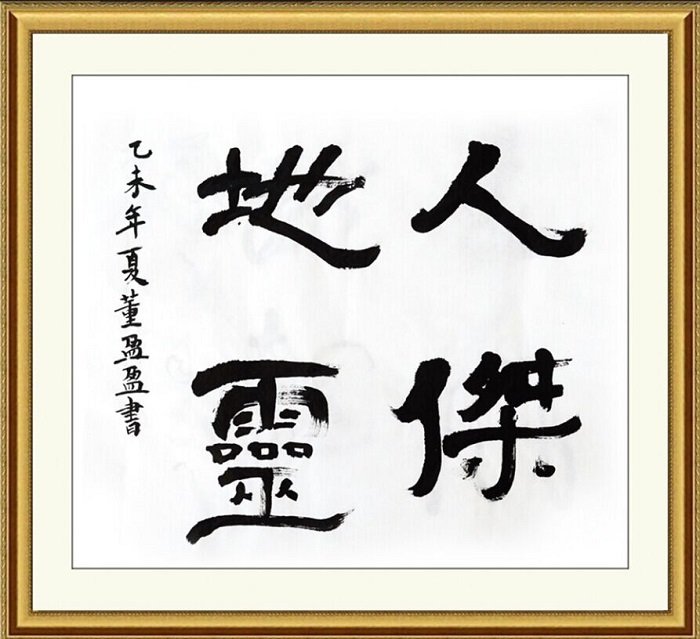 人傑
地靈
乙未年夏董盈盈書